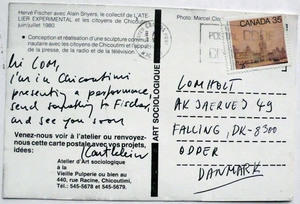 Hervé Fischer avec Alain Snyers, le collectif de L'ATE-
LIER EXPÉRIMENTAL et les citoyens de Chicoutimi
juin/juillet 1980.
• Conception et réalisation d'une sculpture commu-
nautaire avec les citoyens de Chicoutimi et l'appui
Hi LOM,
I'm in Chicoutimi
presenting a performance,
send something to Fischer,
and see you soon
Venez-nous voir à l'atelier ou renvoyez-
nous cette carte postale avec vos projets,
idées:
Atelier d'Art sociologique
à la
Vieille Pulperie ou bien au
440, rue Racine, Chicoutimi,
Tél.: 545-5678 et 545-5679.
ART SOCIOLOGIQUE
Photo: Marcel
CANADA 35
LOMHOLT
49
FALLING, DK-8300
ODDER
DANMARK